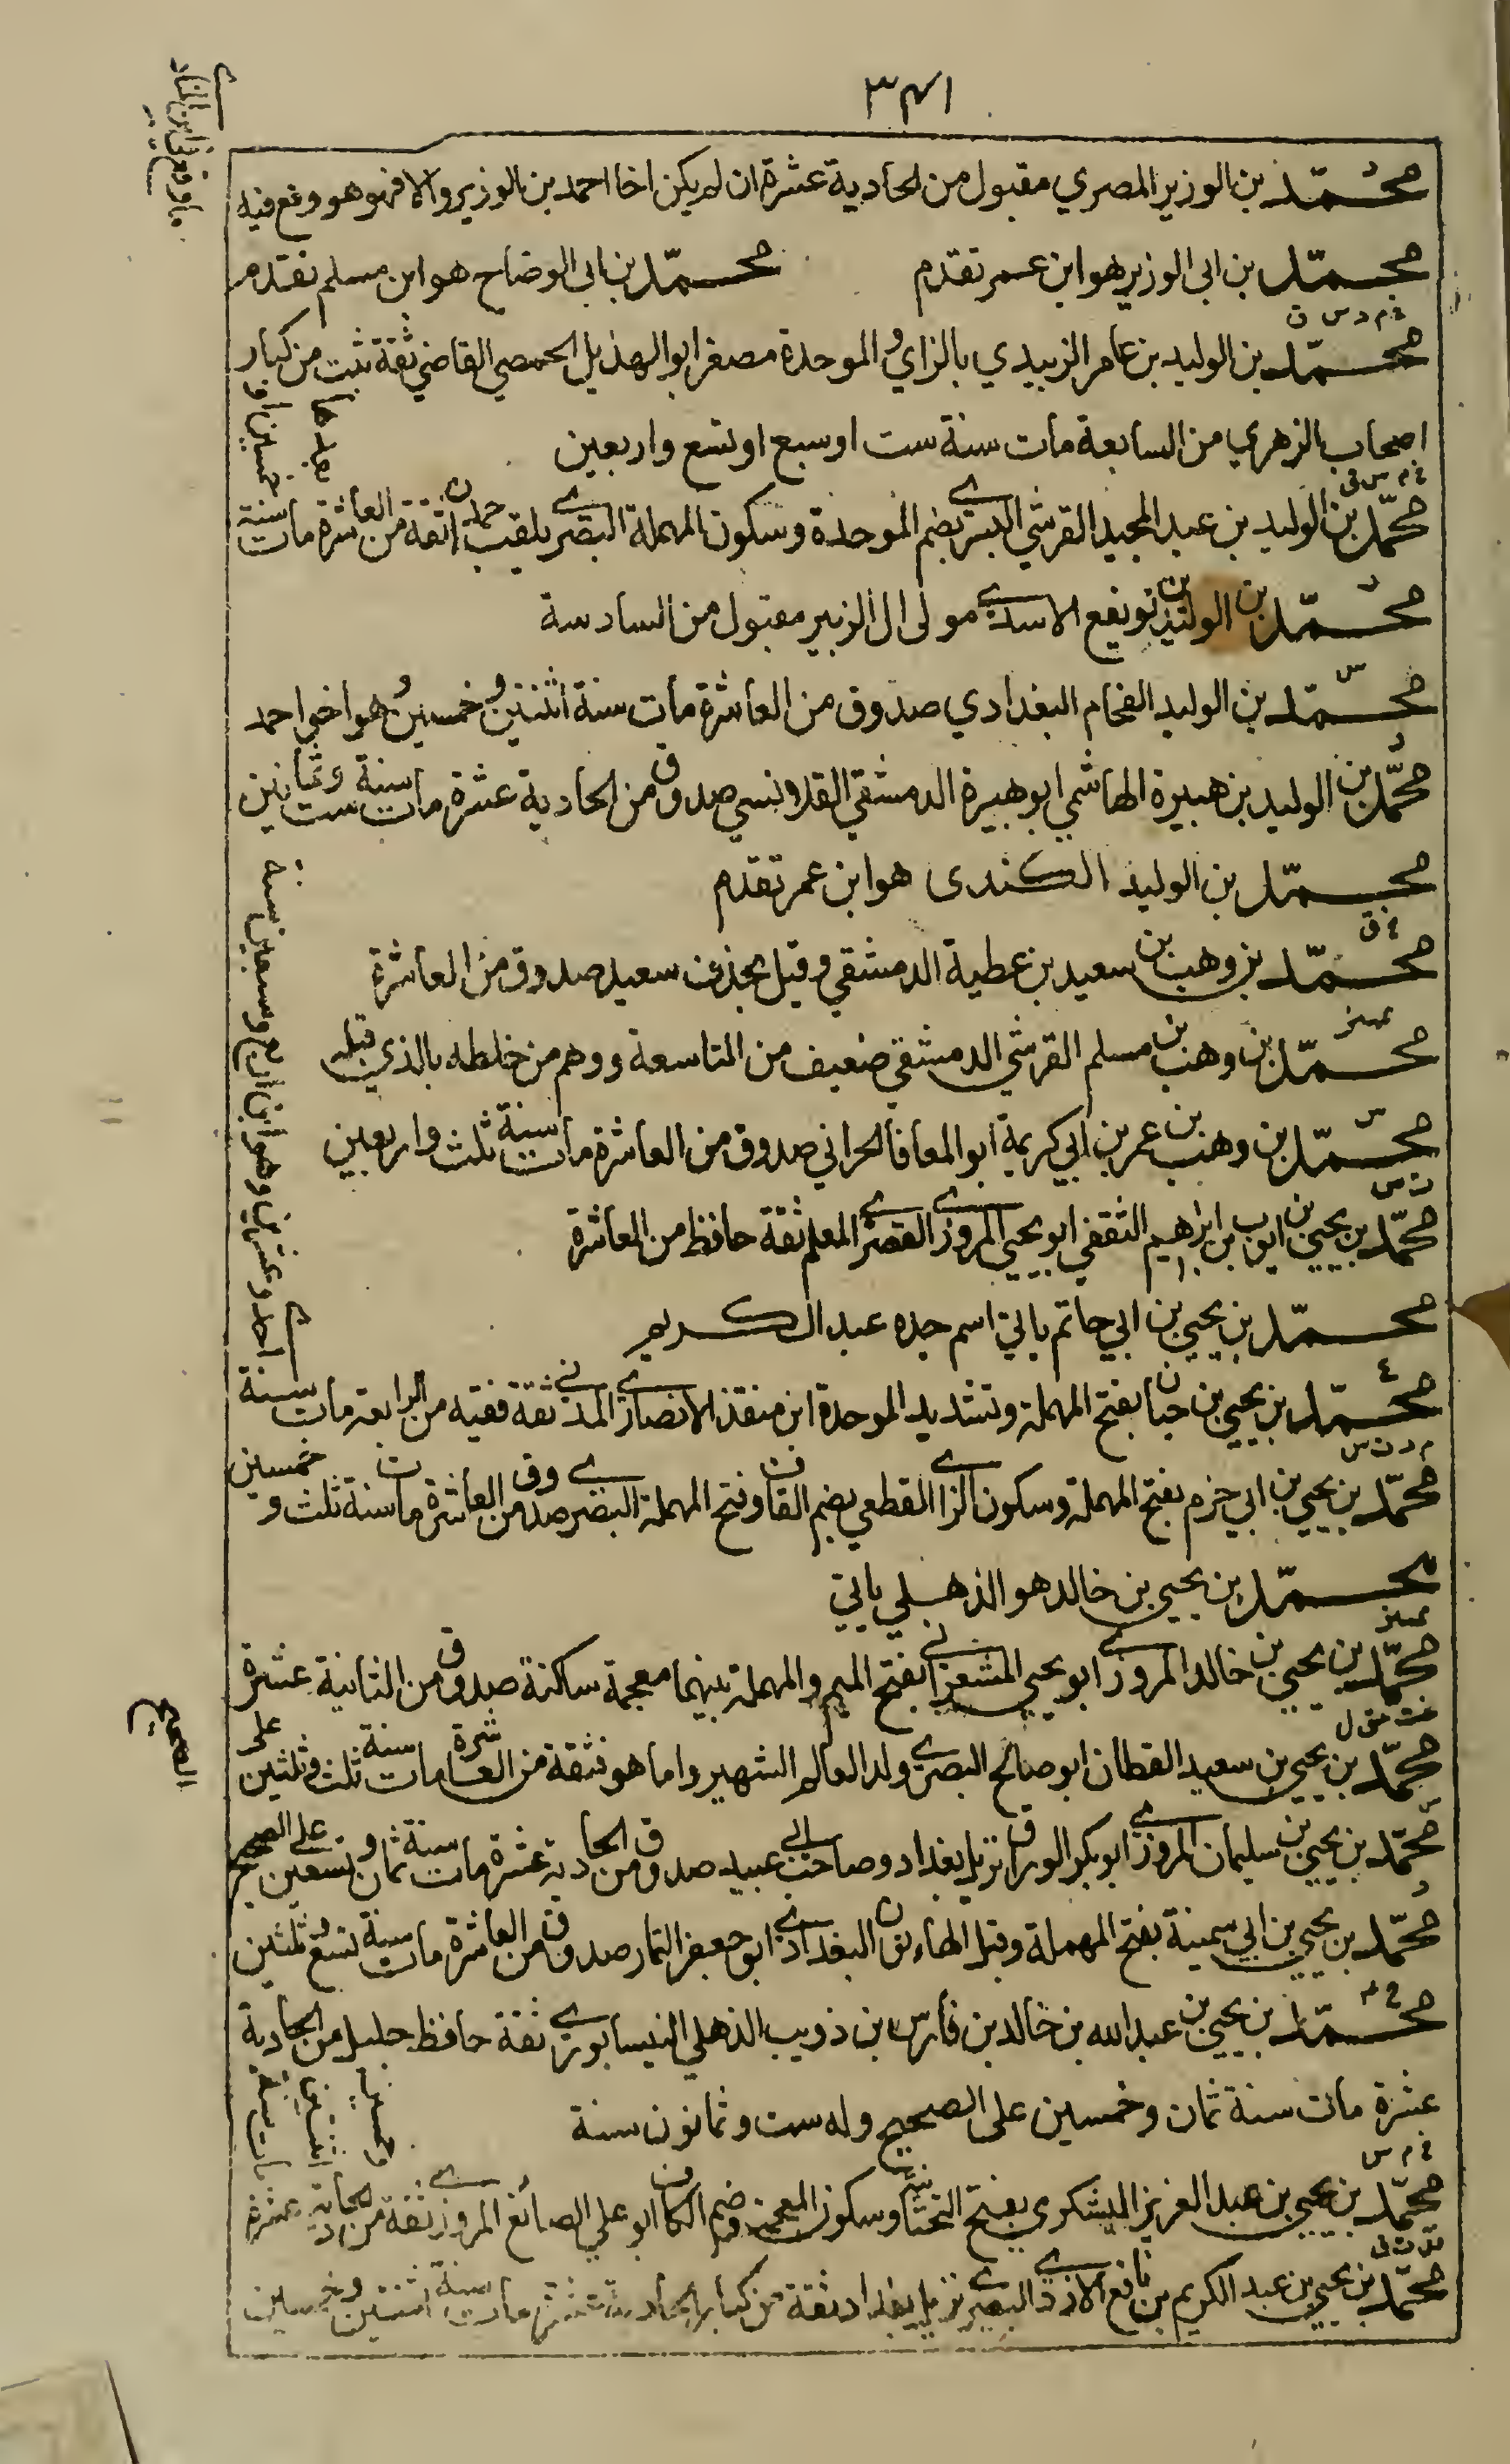 ٣٤١
محمد بن الوزير المصري مقبول من الحادية عشرة ان لم يكن اخا احمد بن الوزير والا فهو هو ووقع فيه
محمد بن ابي الوزير هو ابن عمر تقدم محمد بن ابي الوضاح هو ابن مسلم تقدم
خ م د س ق
محمد بن الوليد بن عامر الزبيدي بالزاي والموحدة مصغر ابو الهذيل الحمصي القاضي ثقة ثبت من كبار
اصحاب الزهري من السابعة مات سنة ست او سبع او تسع واربعين
خ م س ق
محمد بن الوليد بن عبد المجيد القرشي البسري بضم الموحدة وسكون المهملة البصري يلقب حمدان ثقة من العاشرة مات سنة
خمسين او بعدها
د
محمد بن الوليد بن نويفع الاسدي مولى ال الزبير مقبول من السادسة
س
محمد بن الوليد الفحام البغدادي صدوق من العاشرة مات سنة اثنتين وخمسين وهو اخو احمد
د
محمد بن الوليد بن هبيرة الهاشمي ابو هبيرة الدمشقي القلانسي صدوق من الحادية عشرة مات سنة ست وثمانين
محمد بن الوليد الكندى هو ابن عمر تقدم
خ ق
محمد بن وهب بن سعيد بن عطية الدمشقي وقيل بحذف سعيد صدوق من العاشرة
تمييز
محمد بن وهب بن مسلم القرشي الدمشقي ضعيف من التاسعة ووهم من خلطه بالذي قبله
س
محمد بن وهب بن عمر بن ابي كريمة ابو المعافا الحراني صدوق من العاشرة مات سنة ثلث واربعين
ت س
محمد بن يحيى بن ايوب بن ابراهيم الثقفي ابو يحيى المروزي القصري المعلم ثقة حافظ من العاشرة
محمد بن يحيى بن ابي حاتم ياتي اسم جده عبد الكريم
ع
محمد بن يحيى بن حبان بفتح المهملة وتشديد الموحدة ابن منقذ الانصاري المدني ثقة فقيه من الرابعة مات سنة
احد وعشرين وهو ابن اربع وسبعين سنة
م د ت س
محمد بن يحيى بن ابي حزم بفتح المهملة وسكون الزا القطعي بضم القاف وفتح المهملة البصري صدوق من العاشرة مات سنة ثلث و خمسين
محمد بن يحيى بن خالد هو الذهلي ياتي
تمييز
محمد بن يحيى بن خالد المروزي ابو يحيى المشعراني بفتح الميم والمهملة بينهما معجمة ساكنة صدوق من الثانية عشرة
محمد بن يحيى بن سعيد القطان ابو صالح البصري ولد العالم الشهير واما هو فثقة من العاشرة مات سنة ثلث وثلثين على
الصحيح
س
محمد بن يحيى بن سليمان المروزي ابو بكر الوراق نزيل بغداد وصاحب ابي عبيد صدوق من الحادية عشرة مات سنة ثمان وتسعين على الصحيح
د
محمد بن يحيى بن ابي سمينة بفتح المهملة وقبل الهاء نون البغدادي ابو جعفر التمار صدوق من العاشرة مات سنة تسع وثلثين
خ ٤
محمد بن يحيى بن عبد الله بن خالد بن فارس ابن ذويب الذهلي النيسابوري ثقة حافظ جليل من الحادية
عشرة مات سنة ثمان وخمسين على الصحيح وله ست وثمانون سنة
خ م س
محمد بن يحيى بن عبد العزيز اليشكري بفتح التحتانية وسكون المعجمة وضم الكاف ابو علي الصائغ المروزي ثقة من الحادية عشرة
مات سنة اثنتين وخمسين
محمد بن يحيى بن عبد الكريم بن نافع الازدي البصري نزيل بغداد ثقة من كبار الحادية عشرة مات سنة اثنتين وخمسين